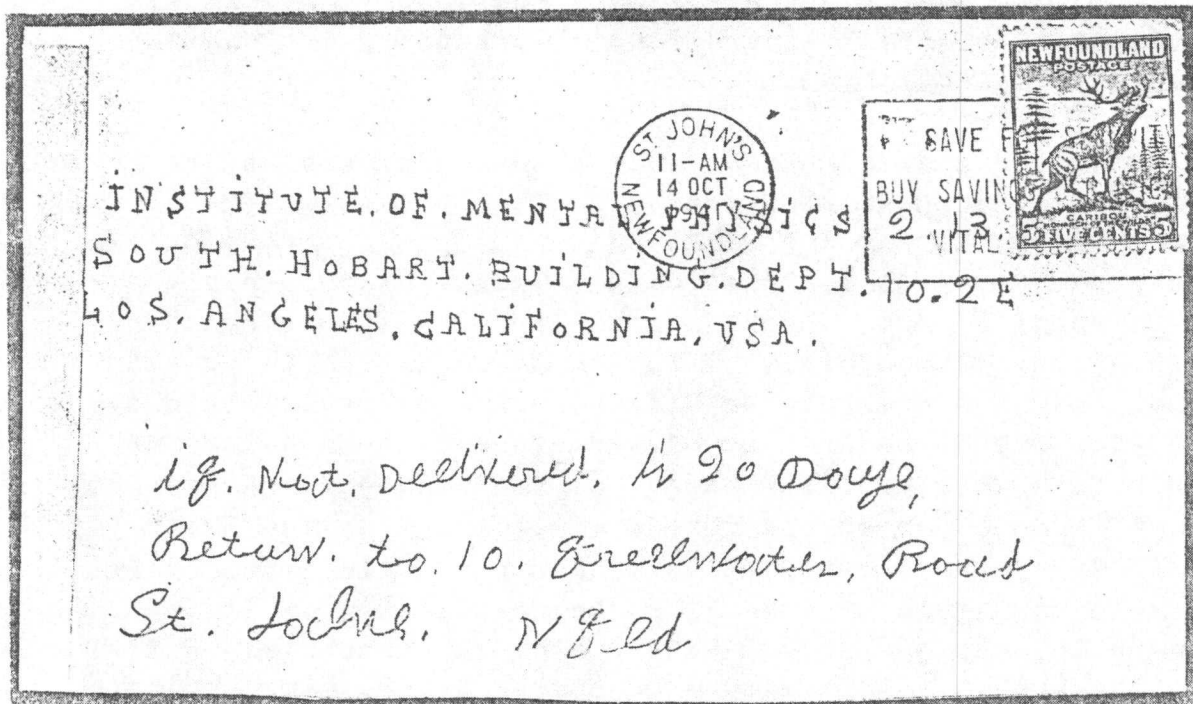 NEWFOUNDLAND
POSTAGE
CARIBOU
5 FIVE CENTS 5
ST JOHN'S
11-AM
14 OCT
NEWFOUNDLAND
SAVE
BUY SAVINGS
VITAL
INSTITUTE. OF. MENTAL PHYSICS 2 13
SOUTH. HOBART. BUILDING. DEPT. 10.2E
LOS. ANGELES. CALIFORNIA. USA.
if. Not. Delivered. 20 Days,
Return. to. 10. Road
St. Nfld